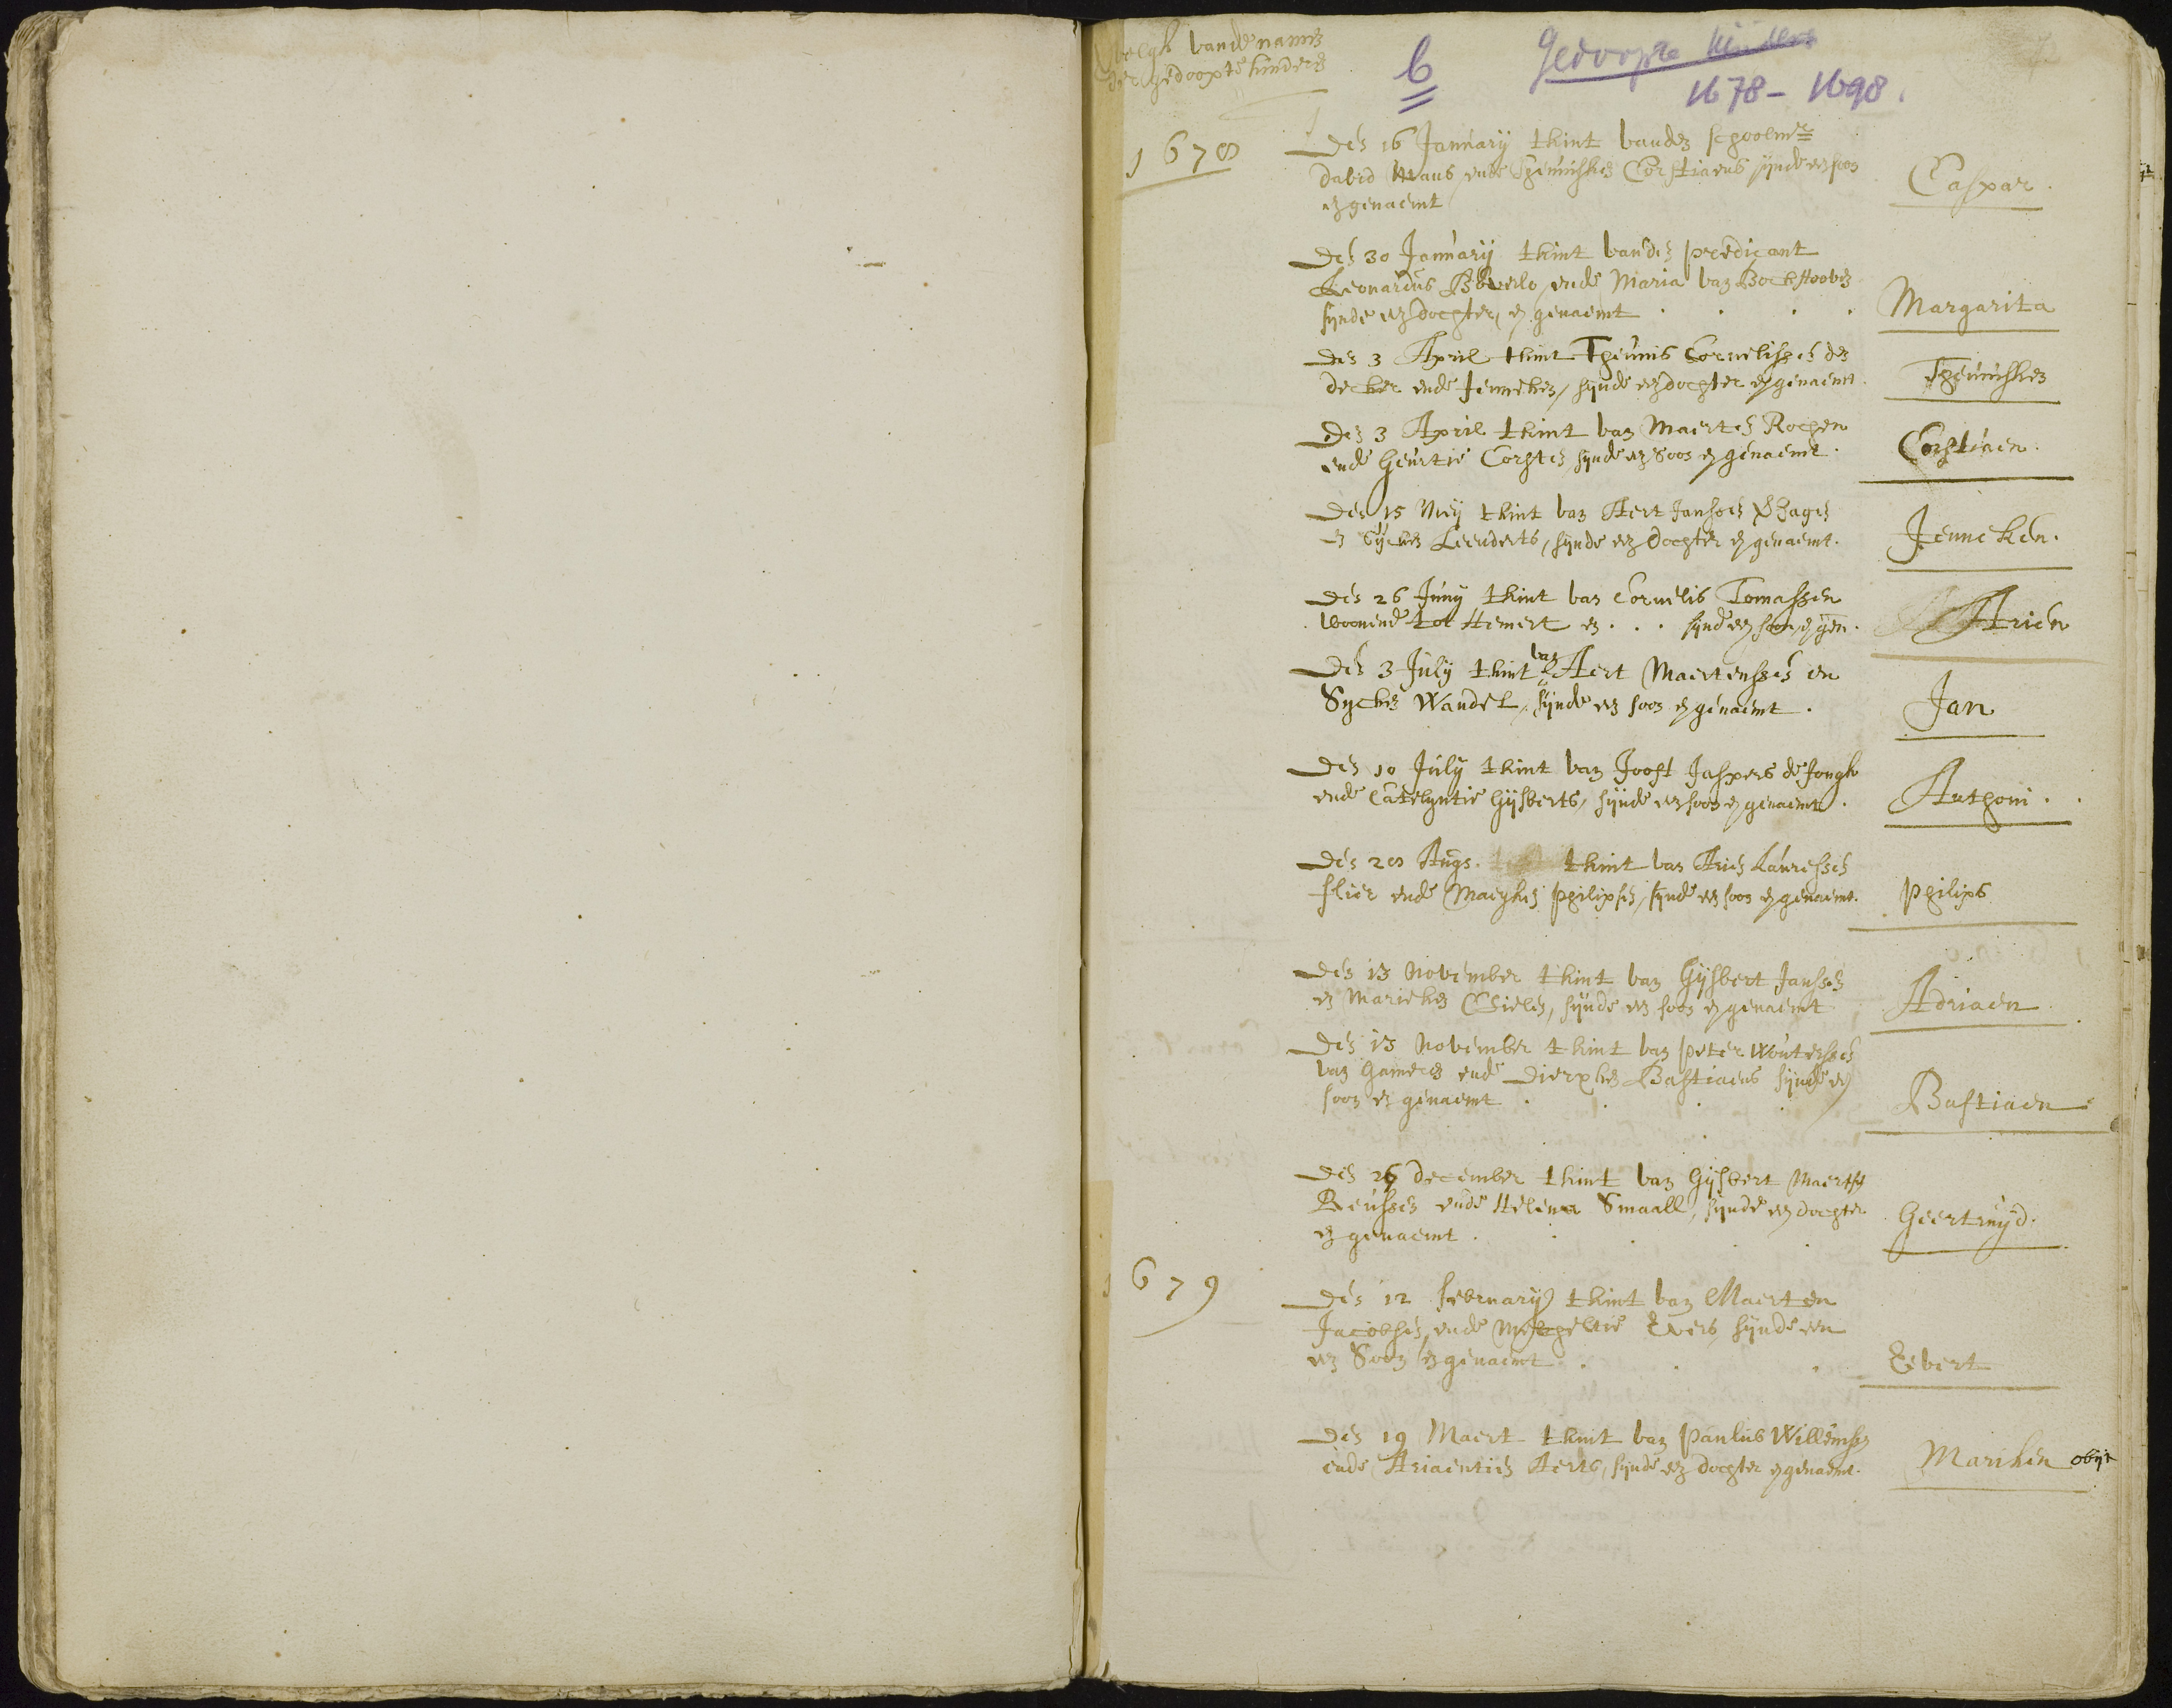 vande namē
der gedoopte kinders
b
Gedoopte kinders
1678 - 1698.
1678
Den 16 January tkint vanden schoolmr
David Maus ende Theunisken Corstiaens synde een soon
en genaemt
Caspar.
Den 30 January tkint vanden predicant
Leonardus Beverlo, ende Maria van Bockstooven
synde een dochter, en genaemt . . . .
Margarita
Den 3 April tkint Theunis Cornelissen den
decker ende Jenneken, synde een dochter en genaemt.
Theunisken
Den 3 April tkint van Maerten Rochen
ende Geurtie Corsten synde een soon en genaemt.
Corstiaen.
Den 15 Mey tkint van Aert Jansoen
en Eycken Leenderts, synde een dochter en genaemt.
Jenneken.
Den 26 Juny tkint van Cornelis Tomassen
woonende tot Hemert en . . . synde een soon en gen.
Arien
Den 3 July tkint van Aert Maertenssen en
Sycken Wandel, synde een soon en genaemt.
Jan
Den 10 July tkint van Joost Jaspers de Jongh
ende Catelyntie Gysberts, synde een soon en genaemt.
Anthoni.
Den 28 Augs. tkint van Arien Lauressen
slier ende Maeyken philipsen, synde een soon en genaemt.
philips
Den 13 November tkint van Gysbert Janssen
en Marieken Gielen, synde een soon en genaemt
Adriaen
Den 13 November tkint van peter Wouterssen
van Gameren ende Dierxken Bastiaens synde een
soon en genaemt . . . .
Bastiaen
Den 26 december tkint van Gysbert Maertss
Reussen ende Helena Smaall, synde een dochter
en genaemt . . . .
Geertruyd.
1679
Den 12 february tkint van Maerten
Jacobsen, ende Mechgeltie Evers, synde een
een Soon en genaemt . . .
Evert
Den 19 Maert tkint van Paulus Willemsen
ende Ariaentien Aerts, synde een dochter en genaemt.
Mariken obijt